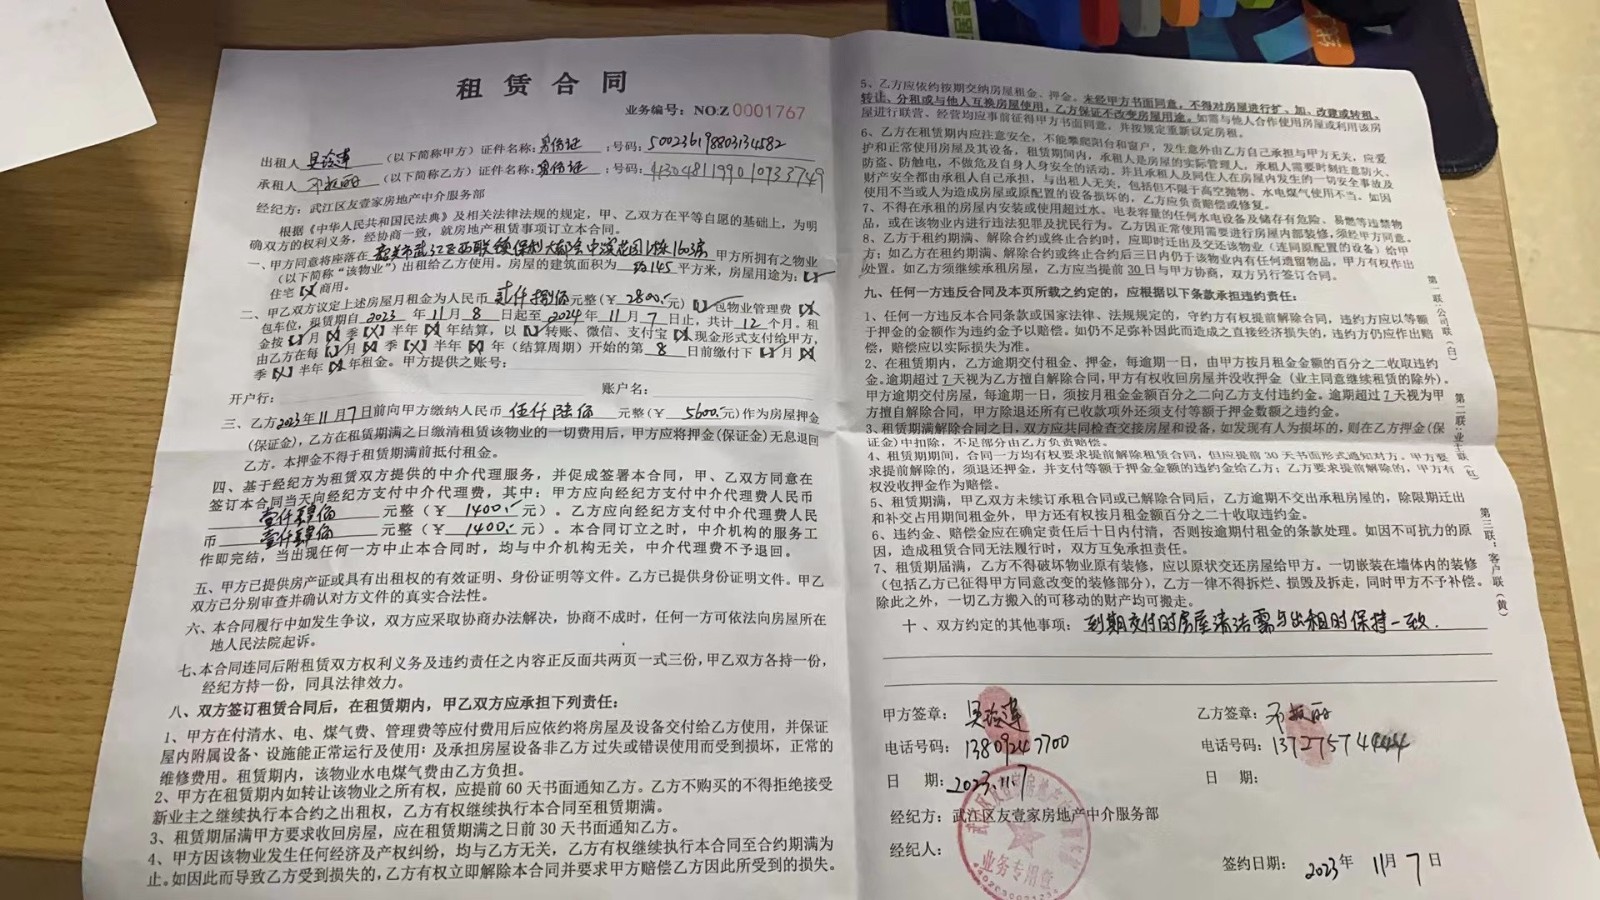 租赁合同
业务编号：NO:Z 0001767
出租人 （以下简称甲方）证件名称：身份证 ；号码：500236198803134582
承租人 （以下简称乙方）证件名称：身份证 ；号码：
经纪方：武江区友壹家房地产中介服务部
根据《中华人民共和国民法典》及相关法律法规的规定，甲、乙双方在平等自愿的基础上，为明
确双方的权利义务，经协商一致，就房屋产租赁事项订立本合同。
一、甲方同意将座落在 韶关市武江区西联镇保利大都会中滨花园1栋1603房 甲方所拥有之物业
（以下简称“该物业”）出租给乙方使用。房屋的建筑面积为 约145 平方米，房屋用途为：【✓】
住宅【X】商用。
二、甲乙双方议定上述房屋月租金为人民币 贰仟捌佰 元整（¥ 2800.- 元）【✓】包物业管理费【X】
包车位，租赁期自 2023 年 11 月 8 日起至 2024 年 11 月 7 日止，共计 12 个月。租
金按【✓】月【X】季【X】半年【X】年结算，以【✓】转账、微信、支付宝【X】现金形式支付给甲方，
由乙方在每【✓】月【X】季【X】半年【X】年（结算周期）开始的第 8 日前缴付下【✓】月【X】
季【X】半年【X】年租金。甲方提供之账号：
开户行： 账户名：
三、乙方2023年11月7日前向甲方缴纳人民币 伍仟陆佰 元整（¥ 5600.-元）作为房屋押金
（保证金），乙方在租赁期满之日缴清租赁该物业的一切费用后，甲方应将押金（保证金）无息退回
乙方。本押金不得于租赁期满前抵付租金。
四、基于经纪方为租赁双方提供的中介代理服务，并促成签署本合同，甲、乙双方同意在
签订本合同当天向经纪方支付中介代理费，其中：甲方应向经纪方支付中介代理费人民币
壹仟肆佰 元整（¥ 1400.- 元）。乙方应向经纪方支付中介代理费人民
币 壹仟肆佰 元整（¥ 1400.- 元）。本合同订立之时，中介机构的服务工
作即完结，当出现任何一方中止本合同时，均与中介机构无关，中介代理费不予退回。
五、甲方已提供房产证或具有出租权的有效证明、身份证明等文件。乙方已提供身份证明文件。甲乙
双方已分别审查并确认对方文件的真实合法性。
六、本合同履行中如发生争议，双方应采取协商办法解决，协商不成时，任何一方可依法向房屋所在
地人民法院起诉。
七、本合同连同后附租赁双方权利义务及违约责任之内容正反面共两页一式三份，甲乙双方各持一份，
经纪方持一份，同具法律效力。
八、双方签订租赁合同后，在租赁期内，甲乙双方应承担下列责任：
1、甲方在付清水、电、煤气费、管理费等应付费用后应依约将房屋及设备交付给乙方使用，并保证
屋内附属设备、设施能正常运行及使用；及承担房屋设备非乙方过失或错误使用而受到损坏，正常的
维修费用。租赁期内，该物业水电煤气费由乙方负担。
2、甲方在租赁期内如转让该物业之所有权，应提前 60 天书面通知乙方。乙方不购买的不得拒绝接受
新业主之继续执行本合约之出租权，乙方有权继续执行本合同至租赁期满。
3、租赁期届满甲方要求收回房屋，应在租赁期满之日前 30 天书面通知乙方。
4、甲方因该物业发生任何经济及产权纠纷，均与乙方无关，乙方有权继续执行本合同至合约期满为
止。如因此而导致乙方受到损失的，乙方有权立即解除本合同并要求甲方赔偿乙方因此所受到的损失。
5、乙方应依约按期交纳房屋租金、押金。未经甲方书面同意，不得对房屋进行扩、加、改建或转租、
转让、分租或与他人互换房屋使用，乙方保证不改变房屋用途。如需与他人合作使用房屋或利用该房
屋进行联营、经营均应事前征得甲方书面同意，并按规定重新议定房租。
6、乙方在租赁期内应注意安全，不能攀爬阳台和窗户，发生意外由乙方自己承担与甲方无关，应爱
护和正常使用房屋及其设备，租赁期间内，承租人是房屋的实际管理人，承租人需要时刻注意防火、
防盗、防触电，不做危及自身人身安全的活动，并且承租人及同住人在房屋内发生的一切安全事故及
财产安全都由承租人自己承担，与出租人无关，包括但不限于高空抛物、水电煤气使用不当。如因
使用不当或人为造成房屋或原配置的设备损坏的，乙方应负责赔偿或修复。
7、不得在承租的房屋内安装或使用超过水、电表容量的任何水电设备及储存有危险、易燃等违禁物
品，或在该物业内进行违法犯罪及扰民行为。乙方因正常使用需要进行房屋内部装修，须经甲方同意。
8、乙方于租约期满、解除合约或终止合约时，应即时迁出及交还该物业（连同原配置的设备）给甲
方；如乙方在租约期满、解除合约或终止合约后三日内仍于该物业内有任何遗留物品，甲方有权作出
处置。如乙方须继续承租房屋，乙方应当提前 30 日与甲方协商，双方另行签订合同。
九、任何一方违反合同及本页所载之约定的，应根据以下条款承担违约责任：
1、任何一方违反本合同条款或国家法律、法规规定的，守约方有权提前解除合同，违约方应以等额
于押金的金额作为违约金予以赔偿。如仍不足弥补因此而造成之直接经济损失的，违约方仍应作出赔
偿，赔偿应以实际损失为准。
2、在租赁期内，乙方逾期交付租金、押金，每逾期一日，由甲方按月租金金额的百分之二收取违约
金。逾期超过 7 天视为乙方擅自解除合同，甲方有权收回房屋并没收押金（业主同意继续租赁的除外）。
甲方逾期交付房屋，每逾期一日，须按月租金金额百分之二向乙方支付违约金。逾期超过 7 天视为甲
方擅自解除合同，甲方除退还所有已收款项外还须支付等额于押金数额之违约金。
3、租赁期满解除合同之日，双方应共同检查交接房屋和设备，如发现有人为损坏的，则在乙方押金（保
证金）中扣除，不足部分由乙方负责赔偿。
4、租赁期期间，合同一方均有权要求提前解除租赁合同，但应提前 30 天书面形式通知对方。甲方要
求提前解除的，须退还押金，并支付等额于押金金额的违约金给乙方；乙方要求提前解除的，甲方有
权没收押金作为赔偿。
5、租赁期满，甲乙双方未续订承租合同或已解除合同后，乙方逾期不交出承租房屋的，除限期迁出
和补交占用期间租金外，甲方还有权按月租金额百分之二十收取违约金。
6、违约金、赔偿金应在确定责任后十日内付清，否则按逾期付租金的条款处理。如因不可抗力的原
因，造成租赁合同无法履行时，双方互免承担责任。
7、租赁期届满，乙方不得破坏物业原有装修，应以原状交还房屋给甲方。一切嵌装在墙体内的装修
（包括乙方已征得甲方同意改变的装修部分），乙方一律不得拆烂、损毁及拆走，同时甲方不予补偿。
除此之外，一切乙方搬入的可移动的财产均可搬走。
十、双方约定的其他事项：到期交付时房屋清洁需与出租时保持一致.
甲方签章：
电话号码：13809247700
日 期：2023.11.7
乙方签章：
电话号码：
日 期：
经纪方：武江区友壹家房地产中介服务部
经纪人：
签约日期：2023年 11月 7日
业务专用章
第一联：公司联（白）
第二联：业主联（红）
第三联：客户联（黄）